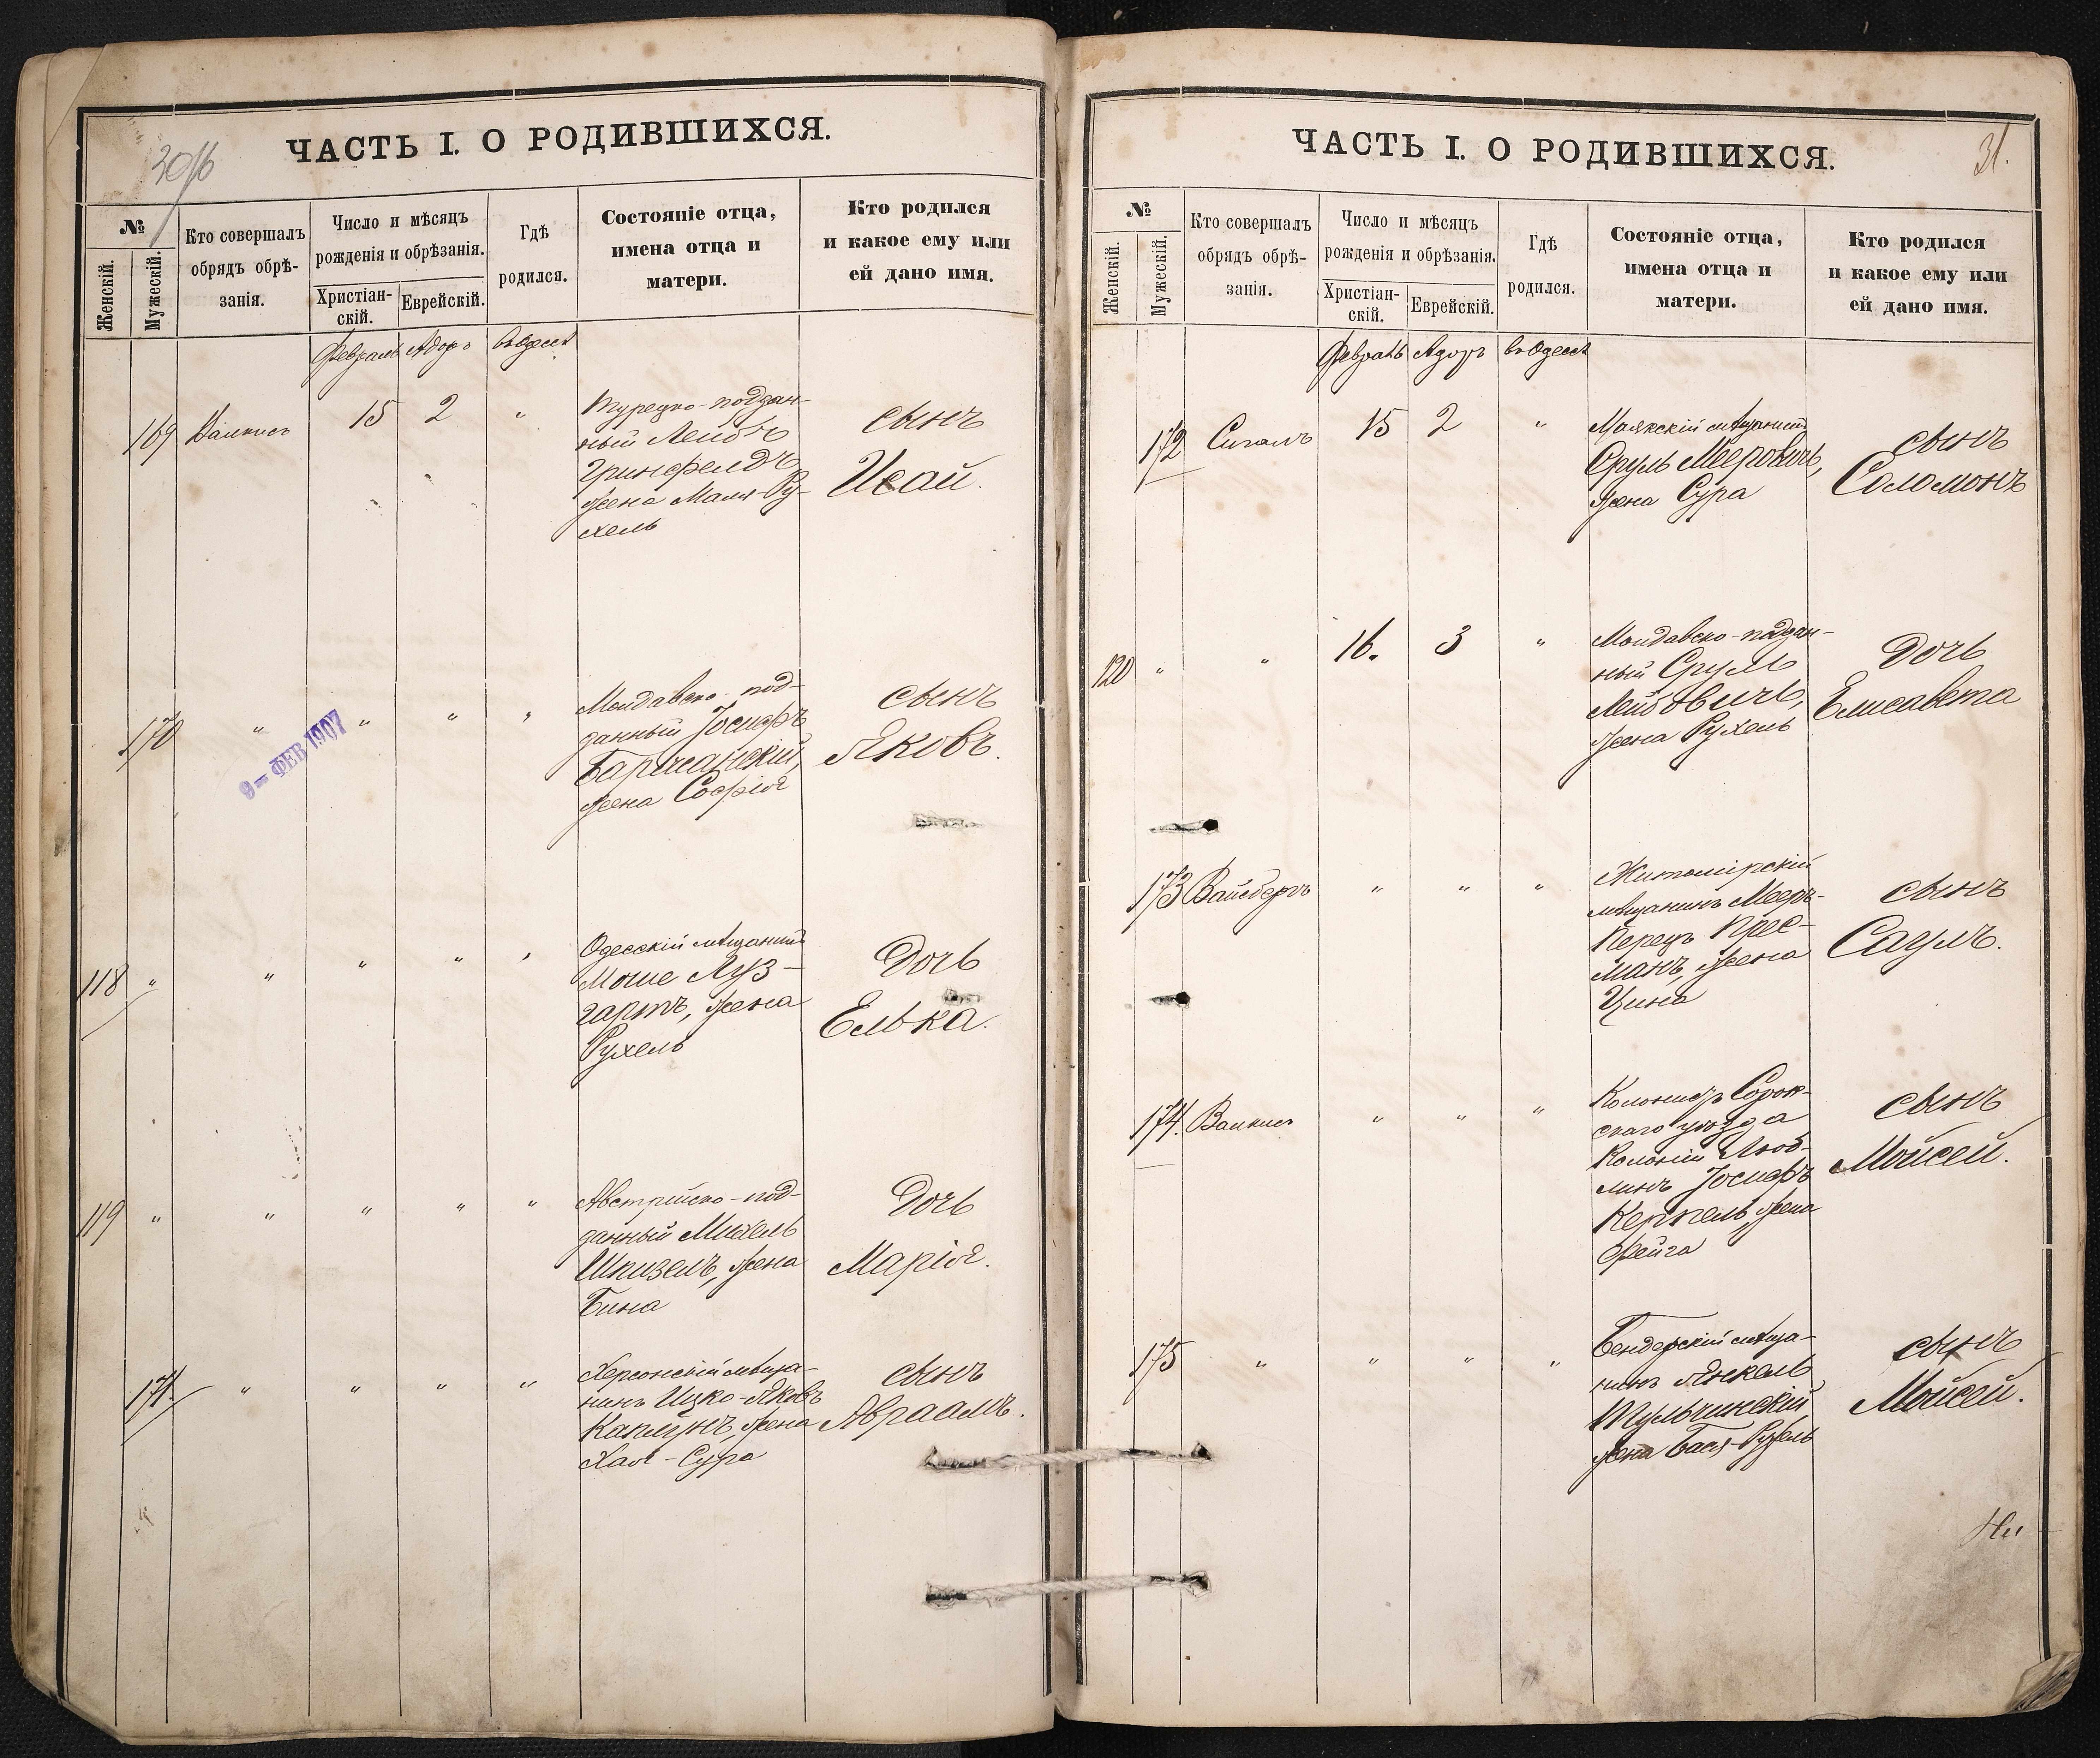 30об
ЧАСТЬ I. О РОДИВШИХСЯ.
№
Женскій.
Мужескій.
Кто совершалъ
обрядъ обрѣ-
занія.
Число и мѣсяцъ
рожденія и обрѣзанія.
Христіан-
скій.
Еврейскій.
Гдѣ
родился.
Состояніе отца,
имена отца и
матери.
Кто родился
и какое ему или
ей дано имя.
Февраль Адоръ въ Одессѣ
169 15 2 "
Турецко-поддан-
ный Лейбъ
Гринфельдъ,
жена Маля-Ру-
хель
сынъ
Исай.
170 " " " "
9 – ФЕВ 1907
Молдавско-под-
данный Іосифъ
Баршанскій,
жена Софія
сынъ
Яковъ.
118 " " " " "
Одесскій мѣщанинъ
Моше Луз-
гартъ, жена
Рухель
Дочь
Елька.
119 " " " " "
Австрійско-под-
данный Михель
Шпизель, жена
Бина
Дочь
Марія.
171. " " " "
Херсонскій мѣща-
нинъ Ицко-Яковъ
Каплунъ, жена
Хая-Сура
сынъ
Авраамъ.
31.
ЧАСТЬ I. О РОДИВШИХСЯ.
№
Женскій.
Мужескій.
Кто совершалъ
обрядъ обрѣ-
занія.
Число и мѣсяцъ
рожденія и обрѣзанія.
Христіан-
скій.
Еврейскій.
Гдѣ
родился.
Состояніе отца,
имена отца и
матери.
Кто родился
и какое ему или
ей дано имя.
Февраль Адоръ въ Одессѣ
172 Сигалъ 15 2 "
Маякскій мѣщанинъ
Сруль Мееровичъ,
жена Сура
сынъ
Соломонъ
120 " " 16. 3 "
Молдавско-поддан-
ный Сруль
Лейбовичъ,
жена Рухель
Дочь
Елисавета
173 Вайсбергъ " " "
Житомірскій
мѣщанинъ Мееръ-
Перецъ Крес-
манъ, жена
Цина
сынъ
Саулъ.
174. Валкисъ " " "
Колонистъ Сорок-
скаго уѣзда
Колоніи Люб-
линъ Іосифъ
Керпель, жена
Фейга
сынъ
Мойсей.
175 " " " "
Бендерскій мѣща-
нинъ Янкель
Тульчинскій
жена Бася-Рухель
сынъ
Мойсей.